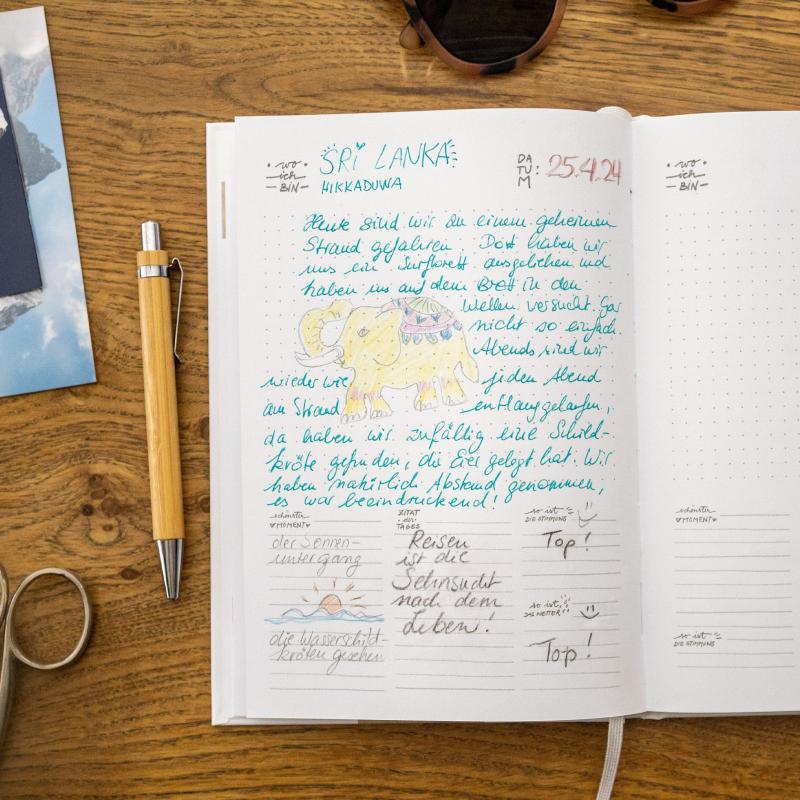 • wo •
ich
– BIN –
SRI LANKA
HIKKADUWA
DA
TU :
M
25.4.24
Heute sind wir an einem geheimen
Strand gefahren. Dort haben wir
uns ein Surfbrett ausgeliehen und
haben uns auf dem Brett in den
Wellen versucht. Gar
nicht so einfach.
Abends sind wir
wieder wie jeden Abend
am Strand entlanggelaufen,
da haben wir zufällig eine Schild-
kröte gefunden, die Eier gelegt hat. Wir
haben natürlich Abstand genommen,
es war beeindruckend!
schönster
♥MOMENT♥
der Sonnen-
untergang
die Wasserschild-
kröten gesehen
ZITAT
- des -
TAGES
Reisen
ist die
Sehnsucht
nach dem
Leben!
so ist
DIE STIMMUNG
Top!
so ist
DAS WETTER
Top!
• wo •
ich
– BIN –
schönster
♥MOMENT♥
so ist
DIE STIMMUNG